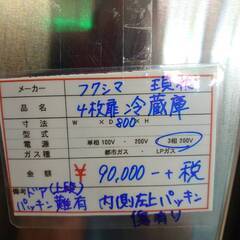 メーカー フクシマ 現状
品名 4枚扉冷蔵庫
寸法 W ×D 800 ×H
型式
電源 単相100V・200V 3相200V
ガス種 都市ガス・LPガス
金額 ¥90,000-+税
備考 ドア(上段)
パッキン難有 内側左上パッキン
傷有り